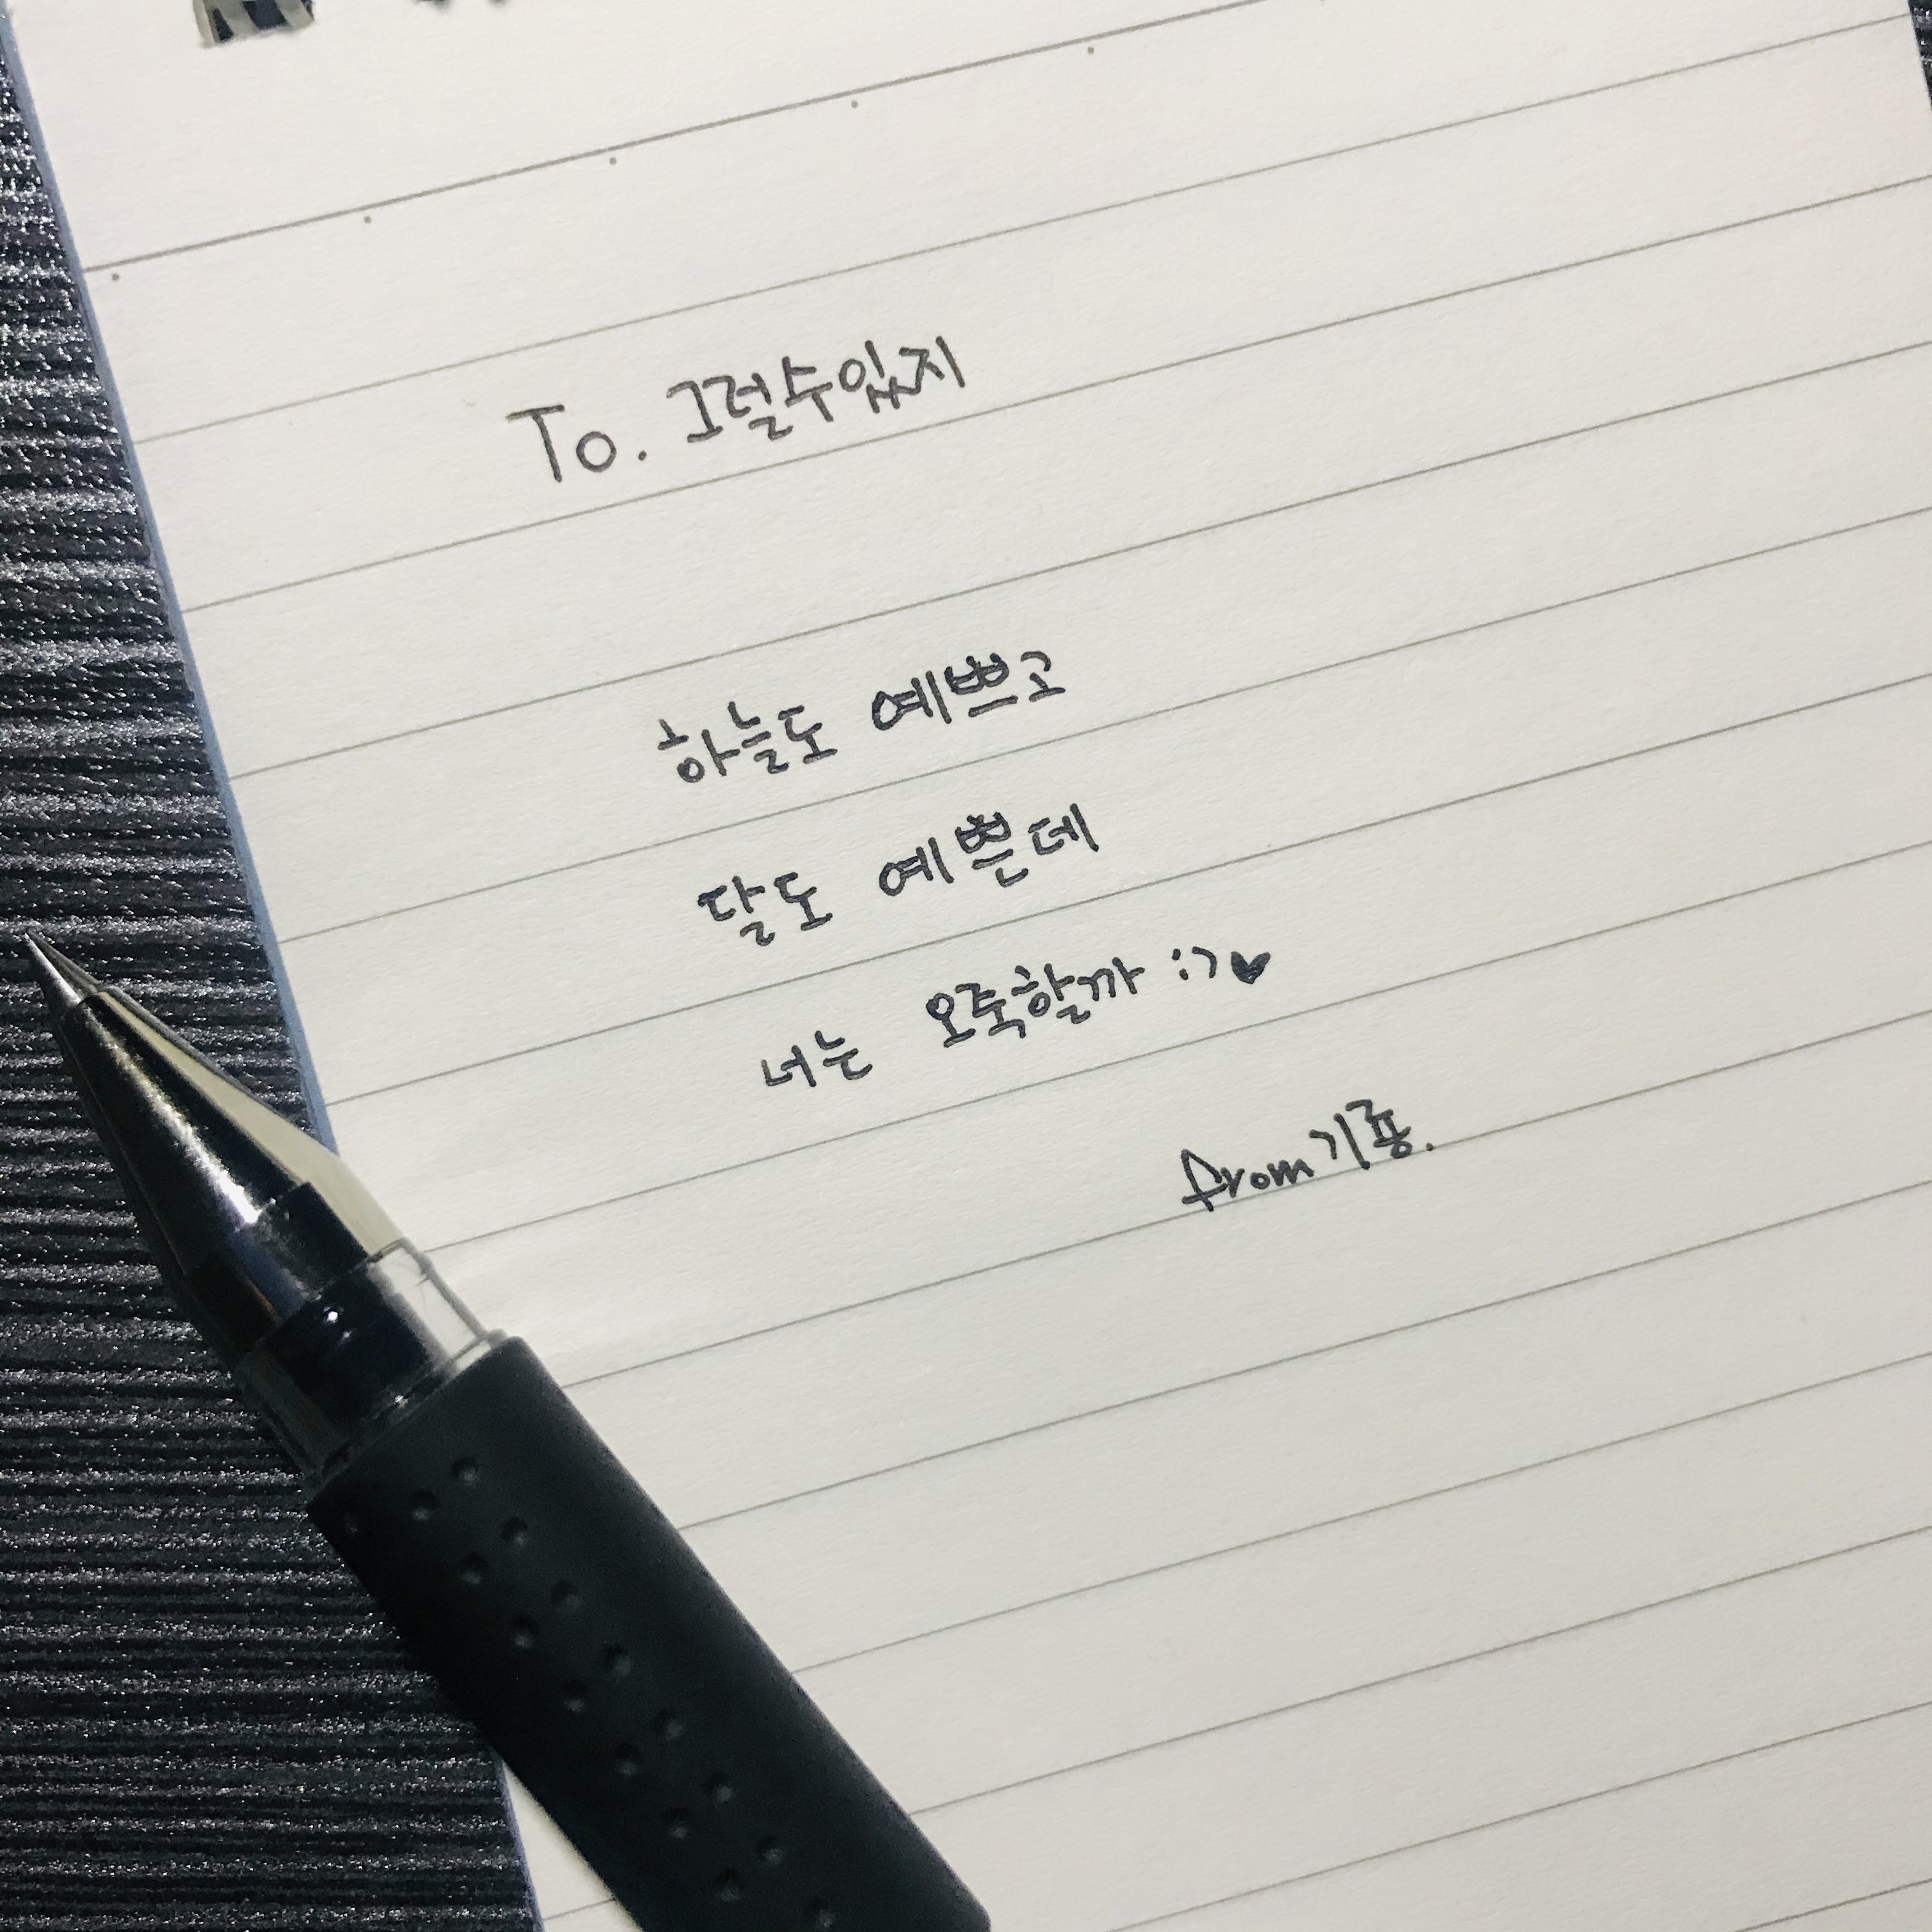 To. 그럴수있지
하늘도 예쁘고
달도 예쁜데
너는 오죽할까 :)♥
from 기풍.